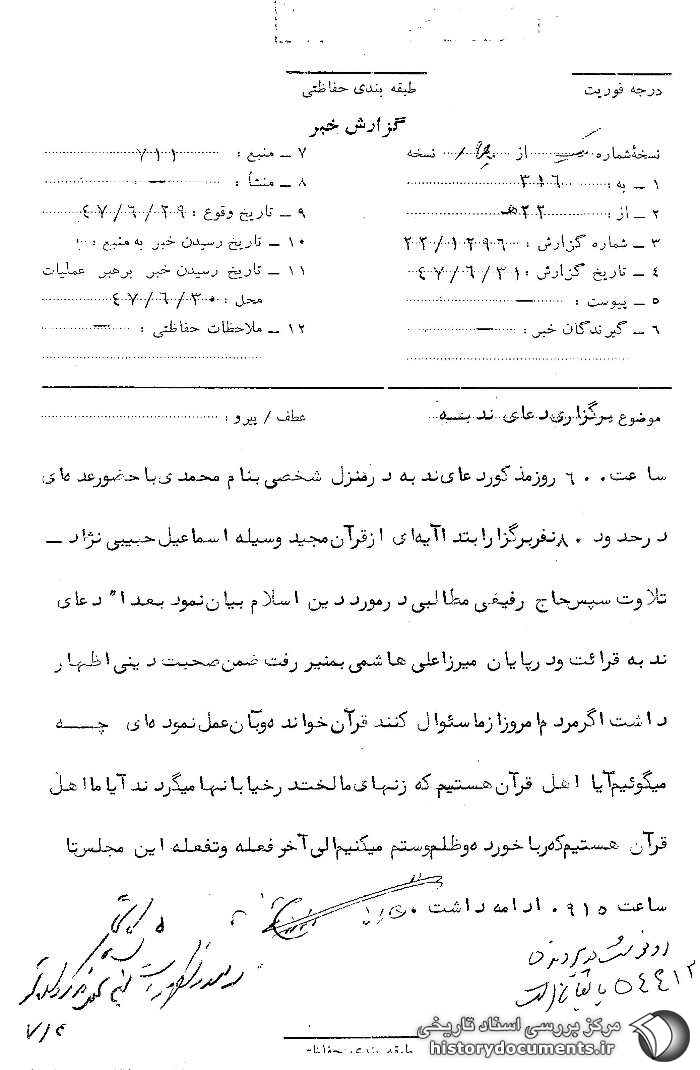 درجه فوریت
طبقه بندی حفاظتی
گزارش خبر
نسخهٔ شماره از نسخه
۱ ـ به : ۳۱۶
۲ ـ از : ۲۲هـ
۳ ـ شماره گزارش : ۲۲/۱۲۹۶۰
۴ ـ تاریخ گزارش : ۴۷/۶/۳۱
۵ ـ پیوست : —
۶ ـ گیرندگان خبر : —
۷ ـ منبع : ۷۱۱
۸ ـ منشأ : —
۹ ـ تاریخ وقوع : ۴۷/۶/۲۹
۱۰ ـ تاریخ رسیدن خبر به منبع :
۱۱ ـ تاریخ رسیدن خبر برهبر عملیات
محل : ۴۷/۶/۳۰
۱۲ ـ ملاحظات حفاظتی : —
موضوع برگزاری دعای ندبه
عطف / پیرو :
ساعت ۶۰۰ روز مذکور دعای ندبه در منزل شخصی بنام محمدی با حضور عده ای
در حدود ۸۰ نفر برگزار ابتدا آیه ای از قرآن مجید وسیله اسماعیل حبیبی نژاد ـ
تلاوت سپس حاج رفیعی مطالبی در مورد دین اسلام بیان نمود بعدا" دعای
ندبه قرائت و در پایان میرزا علی هاشمی بمنبر رفت ضمن صحبت دینی اظهار
داشت اگر مردم امروز از ما سئوال کنند قرآن خوانده و بآن عمل نموده ای چه
میگوئیم آیا اهل قرآن هستیم که زنهای ما لخت در خیابانها میگردند آیا ما اهل
قرآن هستیم که ربا خورده و ظلم و ستم میکنیم الی آخر فعله و تفعله این مجلس تا
ساعت ۰۹۱۵ ادامه داشت
۷/۴
مرکز بررسی اسناد تاریخی
historydocuments.ir
طبقه بندی حفاظتی